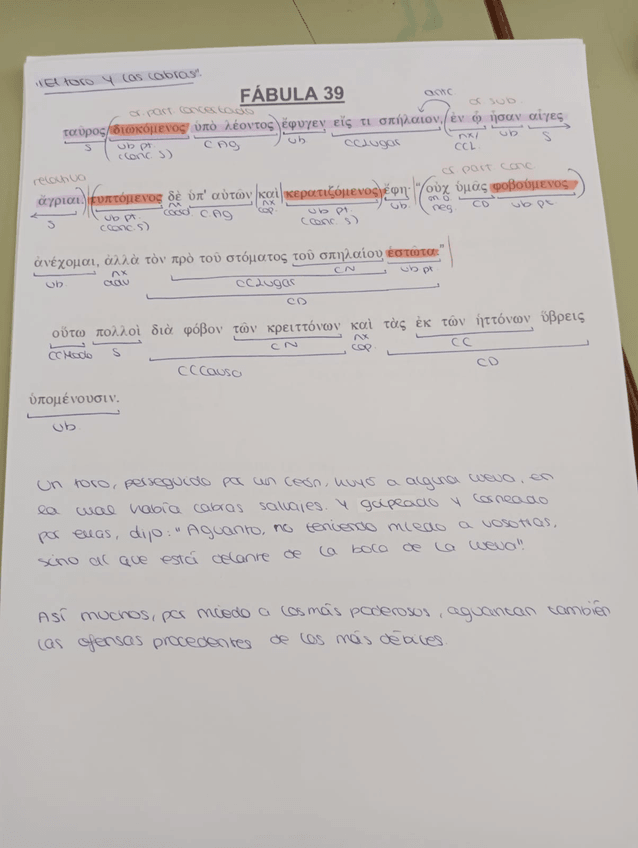 "El toro y las cabras".
FÁBULA 39
or. part concertado
antc
or. sub
ταῦρος (διωκόμενος ὑπὸ λέοντος) ἔφυγεν εἴς τι σπήλαιον, (ἐν ᾧ ἦσαν αἶγες
S vb pt. (conc. S) C Ag vb CCLugar nx/CCL vb S
relativo
or. part conc
ἄγριαι.) (τυπτόμενος δὲ ὑπ' αὐτῶν καὶ κερατιζόμενος) ἔφη· "(οὐχ ὑμᾶς φοβούμενος)
S vb pt. (conc. S) nx C Ag nx cop. vb pt. (conc. S) vb. neg. CD vb pt.
ἀνέχομαι, ἀλλὰ τὸν πρὸ τοῦ στόματος τοῦ σπηλαίου ἑστῶτα."
vb. nx CN vb pt
CCLugar
CD
οὕτω πολλοὶ διὰ φόβον τῶν κρειττόνων καὶ τὰς ἐκ τῶν ἡττόνων ὕβρεις
CCModo S CN nx cop. CC
CCCausa CD
ὑπομένουσιν.
vb
Un toro, perseguido por un león, huyó a alguna cueva, en
la cual había cabras salvajes. Y golpeado y corneado
por ellas, dijo: "Aguanto, no teniendo miedo a vosotras,
sino al que está delante de la boca de la cueva".
Así muchos, por miedo a los más poderosos, aguantan también
las ofensas procedentes de los más débiles.